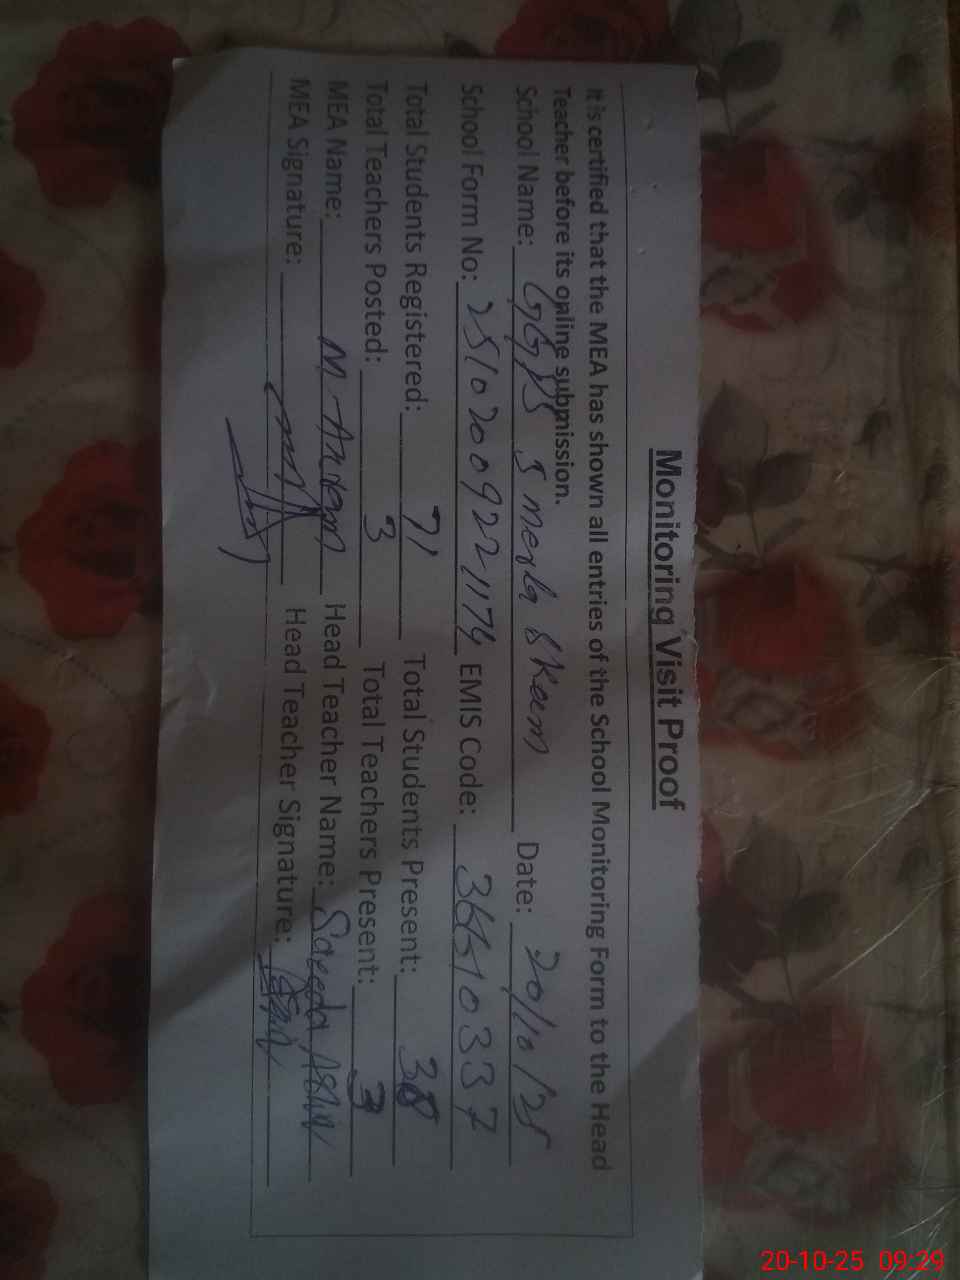 Monitoring Visit Proof
It is certified that the MEA has shown all entries of the School Monitoring Form to the Head
Teacher before its online submission.
School Name: GGPS 5 merla Skeem Date: 20/10/25
School Form No: 25102009221174 EMIS Code: 36610337
Total Students Registered: 71 Total Students Present: 38
Total Teachers Posted: 3 Total Teachers Present: 3
MEA Name: M. Akram Head Teacher Name: Saeeda
MEA Signature: Head Teacher Signature:
20-10-25 09:29